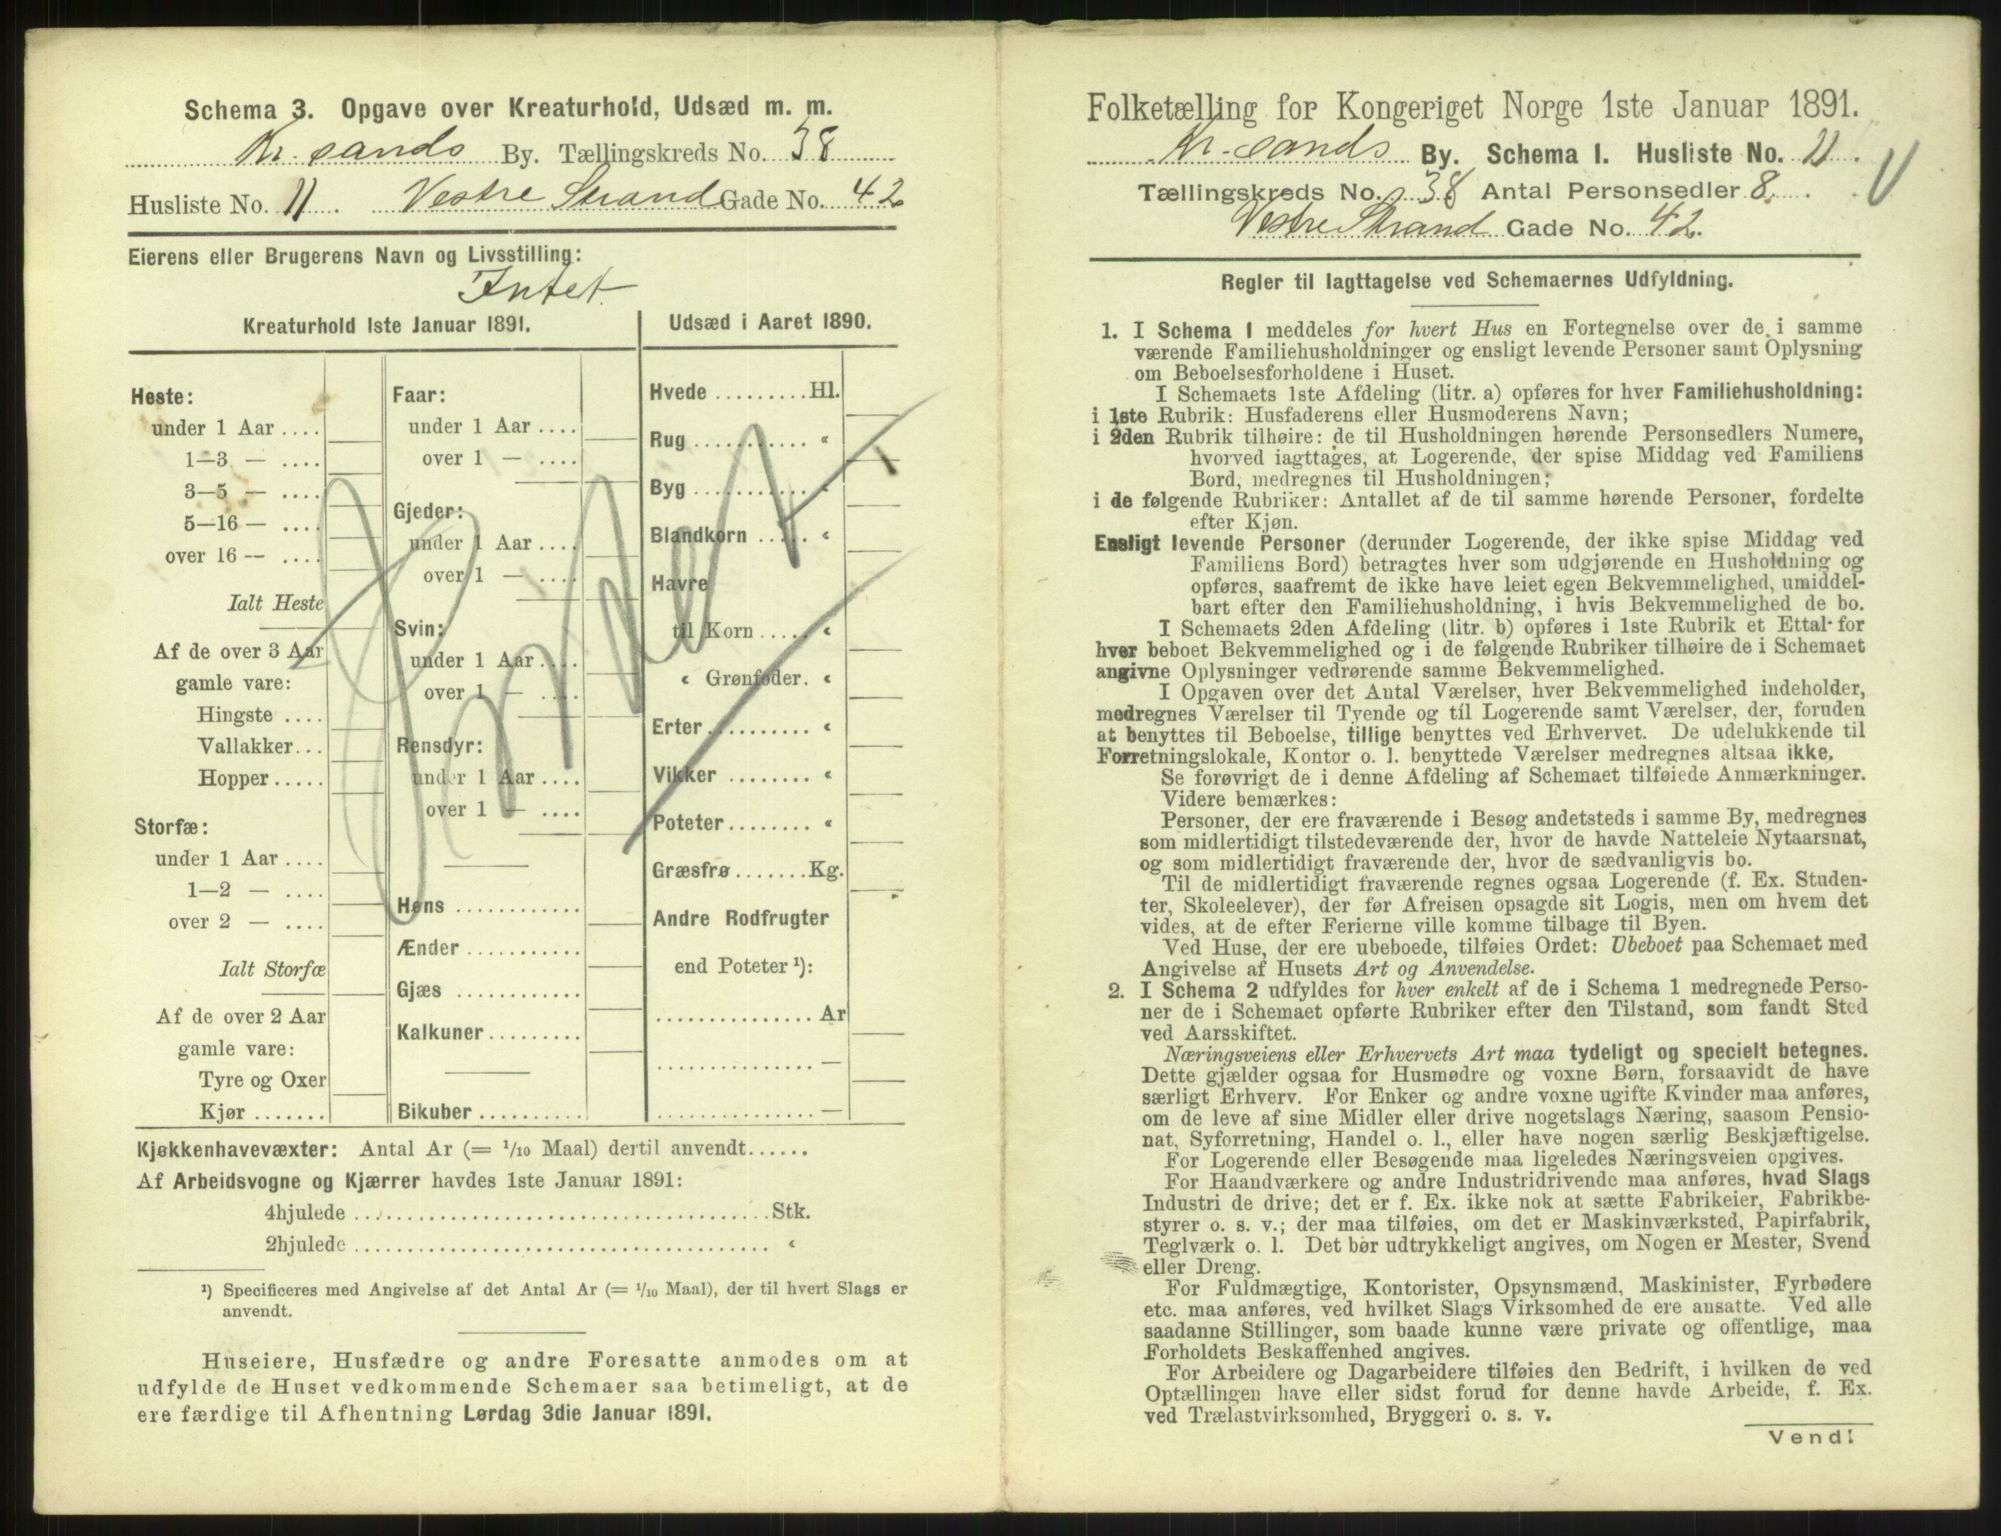 Schema 3. Opgave over Kreaturhold, Udsæd m. m.
Kr. sands By. Tællingskreds No. 38
Husliste No. 11. Vestre Strand Gade No. 42
Eierens eller Brugerens Navn og Livsstilling:
Intet.
Kreaturhold 1ste Januar 1891.
Heste:
under 1 Aar ....
1—3 — ....
3—5 — ....
5—16 — ....
over 16 — ....
Ialt Heste
Af de over 3 Aar
gamle vare:
Hingste ....
Vallakker...
Hopper.....
Storfæ:
under 1 Aar ....
1—2 — ....
over 2 — ....
Ialt Storfæ
Af de over 2 Aar
gamle vare:
Tyre og Oxer
Kjør .......
Faar:
under 1 Aar ....
over 1 — ....
Gjeder:
under 1 Aar ....
over 1 — ....
Svin:
under 1 Aar ....
over 1 — ....
Rensdyr:
under 1 Aar ....
over 1 — ....
Høns ............
Ænder ...........
Gjæs ............
Kalkuner.........
Bikuber..........
Udsæd i Aaret 1890.
Hvede .........Hl.
Rug ........... «
Byg ........... «
Blandkorn ..... «
Havre
til Korn ..... «
« Grønfoder. «
Erter.......... «
Vikker ........ «
Poteter........ «
Græsfrø.......Kg.
Andre Rodfrugter
end Poteter ¹):
...............Ar
...............—
...............—
Kjøkkenhavevæxter: Antal Ar (= 1/10 Maal) dertil anvendt......
Af Arbeidsvogne og Kjærrer havdes 1ste Januar 1891:
4hjulede ......................................Stk.
2hjulede ...................................... «
¹) Specificeres med Angivelse af det Antal Ar (= 1/10 Maal), der til hvert Slags er
anvendt.
Huseiere, Husfædre og andre Foresatte anmodes om at
udfylde de Huset vedkommende Schemaer saa betimeligt, at de
ere færdige til Afhentning Lørdag 3die Januar 1891.
Folketælling for Kongeriget Norge 1ste Januar 1891.
Kr. sands By. Schema 1. Husliste No. 11.
Tællingskreds No. 38 Antal Personsedler 8.
Vestre Strand Gade No. 42.
Regler til Iagttagelse ved Schemaernes Udfyldning.
1. I Schema 1 meddeles for hvert Hus en Fortegnelse over de i samme
værende Familiehusholdninger og ensligt levende Personer samt Oplysning
om Beboelsesforholdene i Huset.
I Schemaets 1ste Afdeling (litr. a) opføres for hver Familiehusholdning:
i 1ste Rubrik: Husfaderens eller Husmoderens Navn;
i 2den Rubrik tilhøire: de til Husholdningen hørende Personsedlers Numere,
hvorved iagttages, at Logerende, der spise Middag ved Familiens
Bord, medregnes til Husholdningen;
i de følgende Rubriker: Antallet af de til samme hørende Personer, fordelte
efter Kjøn.
Ensligt levende Personer (derunder Logerende, der ikke spise Middag ved
Familiens Bord) betragtes hver som udgjørende en Husholdning og
opføres, saafremt de ikke have leiet egen Bekvemmelighed, umiddel-
bart efter den Familiehusholdning, i hvis Bekvemmelighed de bo.
I Schemaets 2den Afdeling (litr. b) opføres i 1ste Rubrik et Ettal for
hver beboet Bekvemmelighed og i de følgende Rubriker tilhøire de i Schemaet
angivne Oplysninger vedrørende samme Bekvemmelighed.
I Opgaven over det Antal Værelser, hver Bekvemmelighed indeholder,
medregnes Værelser til Tyende og til Logerende samt Værelser, der, foruden
at benyttes til Beboelse, tillige benyttes ved Erhvervet. De udelukkende til
Forretningslokale, Kontor o. l. benyttede Værelser medregnes altsaa ikke.
Se forøvrigt de i denne Afdeling af Schemaet tilføiede Anmærkninger.
Videre bemærkes:
Personer, der ere fraværende i Besøg andetsteds i samme By, medregnes
som midlertidigt tilstedeværende der, hvor de havde Natteleie Nytaarsnat,
og som midlertidigt fraværende der, hvor de sædvanligvis bo.
Til de midlertidigt fraværende regnes ogsaa Logerende (f. Ex. Studen-
ter, Skoleelever), der før Afreisen opsagde sit Logis, men om hvem det
vides, at de efter Ferierne ville komme tilbage til Byen.
Ved Huse, der ere ubeboede, tilføies Ordet: Ubeboet paa Schemaet med
Angivelse af Husets Art og Anvendelse.
2. I Schema 2 udfyldes for hver enkelt af de i Schema 1 medregnede Perso-
ner de i Schemaet opførte Rubriker efter den Tilstand, som fandt Sted
ved Aarsskiftet.
Næringsveiens eller Erhvervets Art maa tydeligt og specielt betegnes.
Dette gjælder ogsaa for Husmødre og voxne Børn, forsaavidt de have
særligt Erhverv. For Enker og andre voxne ugifte Kvinder maa anføres,
om de leve af sine Midler eller drive nogetslags Næring, saasom Pensio-
nat, Syforretning, Handel o. l., eller have nogen særlig Beskjæftigelse.
For Logerende eller Besøgende maa ligeledes Næringsveien opgives.
For Haandværkere og andre Industridrivende maa anføres, hvad Slags
Industri de drive; det er f. Ex. ikke nok at sætte Fabrikeier, Fabrikbe-
styrer o. s. v.; der maa tilføies, om det er Maskinværksted, Papirfabrik,
Teglværk o. l. Det bør udtrykkeligt angives, om Nogen er Mester, Svend
eller Dreng.
For Fuldmægtige, Kontorister, Opsynsmænd, Maskinister, Fyrbødere
etc. maa anføres, ved hvilket Slags Virksomhed de ere ansatte. Ved alle
saadanne Stillinger, som baade kunne være private og offentlige, maa
Forholdets Beskaffenhed angives.
For Arbeidere og Dagarbeidere tilføies den Bedrift, i hvilken de ved
Optællingen have eller sidst forud for denne havde Arbeide, f. Ex.
ved Trælastvirksomhed, Bryggeri o. s. v.
Vend!